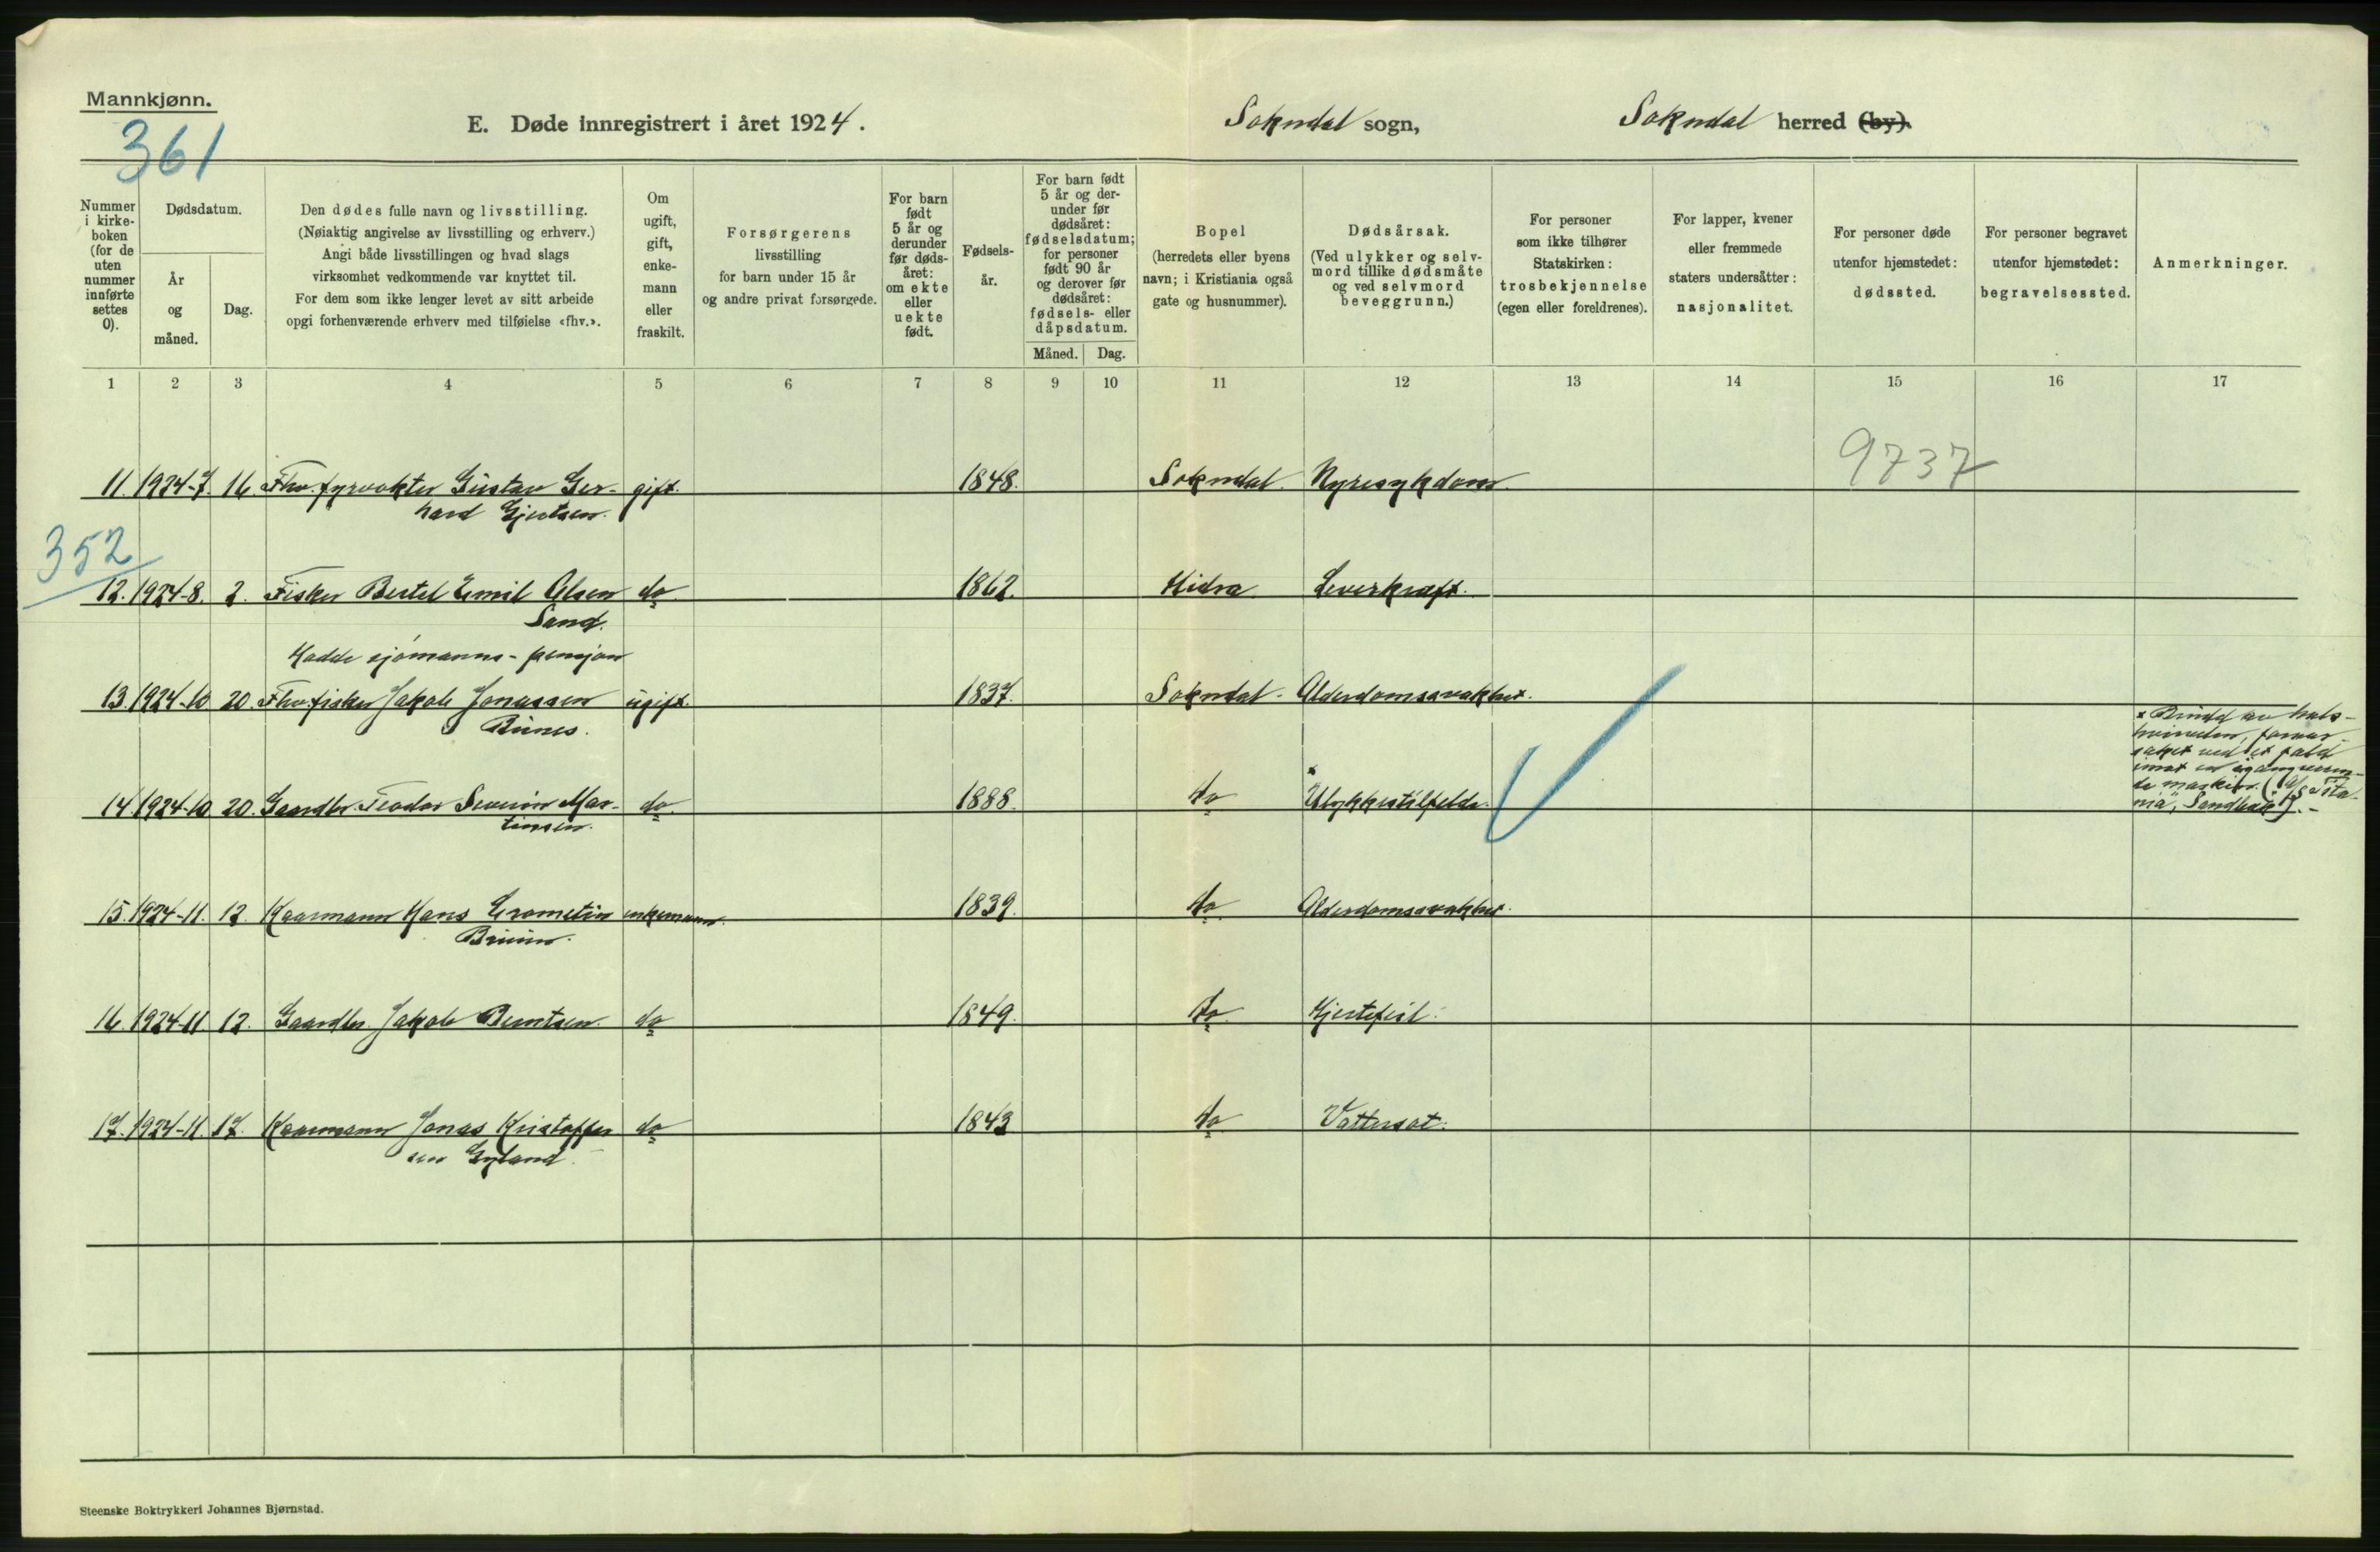 Mannkjønn.
361
E. Døde innregistrert i året 1924.
Sokndal sogn,
Sokndal herred (by).
Nummer i kirke- boken (for de uten nummer innførte settes 0).
Dødsdatum.
År og måned.
Dag.
Den dødes fulle navn og livsstilling.
(Nøiaktig angivelse av livsstilling og erhverv.)
Angi både livsstillingen og hvad slags
virksomhet vedkommende var knyttet til.
For dem som ikke lenger levet av sitt arbeide
opgi forhenværende erhverv med tilføielse «fhv.».
Om ugift, gift, enke- mann eller fraskilt.
Forsørgerens
livsstilling
for barn under 15 år
og andre privat forsørgede.
For barn født 5 år og derunder før døds- året: om ekte eller uekte født.
Fødsels- år.
For barn født 5 år og der- under før dødsåret: fødselsdatum; for personer født 90 år og derover før dødsåret: fødsels- eller dåpsdatum.
Måned. Dag.
Bopel
(herredets eller byens
navn; i Kristiania også
gate og husnummer).
Dødsårsak.
(Ved ulykker og selv-
mord tillike dødsmåte
og ved selvmord
beveggrunn.)
For personer
som ikke tilhører
Statskirken:
trosbekjennelse
(egen eller foreldrenes).
For lapper, kvener
eller fremmede
staters undersåtter:
nasjonalitet.
For personer døde
utenfor hjemstedet:
dødssted.
For personer begravet
utenfor hjemstedet:
begravelsessted.
Anmerkninger.
1 2 3 4 5 6 7 8 9 10 11 12 13 14 15 16 17
9737
11. 1924-7. 16. Fhv. fyrvokter Gustav Ger- gift. 1848. Sokndal. Nyresykdom.
hard Gjertsen.
352
12. 1924-8. 2. Fisker Bertel Emil Olsen do 1862. Hidra Leverkræft.
Sand.
Hadde sjømanns-pensjon
13. 1924-10 20 Fhv. fisker Jakob Jonassen ugift. 1837. Sokndal. Alderdomssvakhet.
Rünes.
14 1924-10 20. Gaardbr. Teodor Severin Mar- do. 1888. do × Ulykkestilfelde.
tinsen.
× Brudd av hals-
hvirvelen, foraar-
saket ved et fald
imot en igangværen-
de maskin. (A/S Tita-
nia, Sandbæk).-
15. 1924-11. 12. Kaarmann Hans enkemann. 1839. do Alderdomssvakhet.
Bruun.
16 1924-11 12. Gaardbr. Jakob Berntsen. do 1849. do Hjertefeil.
17. 1924-11. 17. Kaarmann Jonas Kristoffer do 1843 do Vattersot.
sen Gyland.
Steenske Boktrykkeri Johannes Bjørnstad.